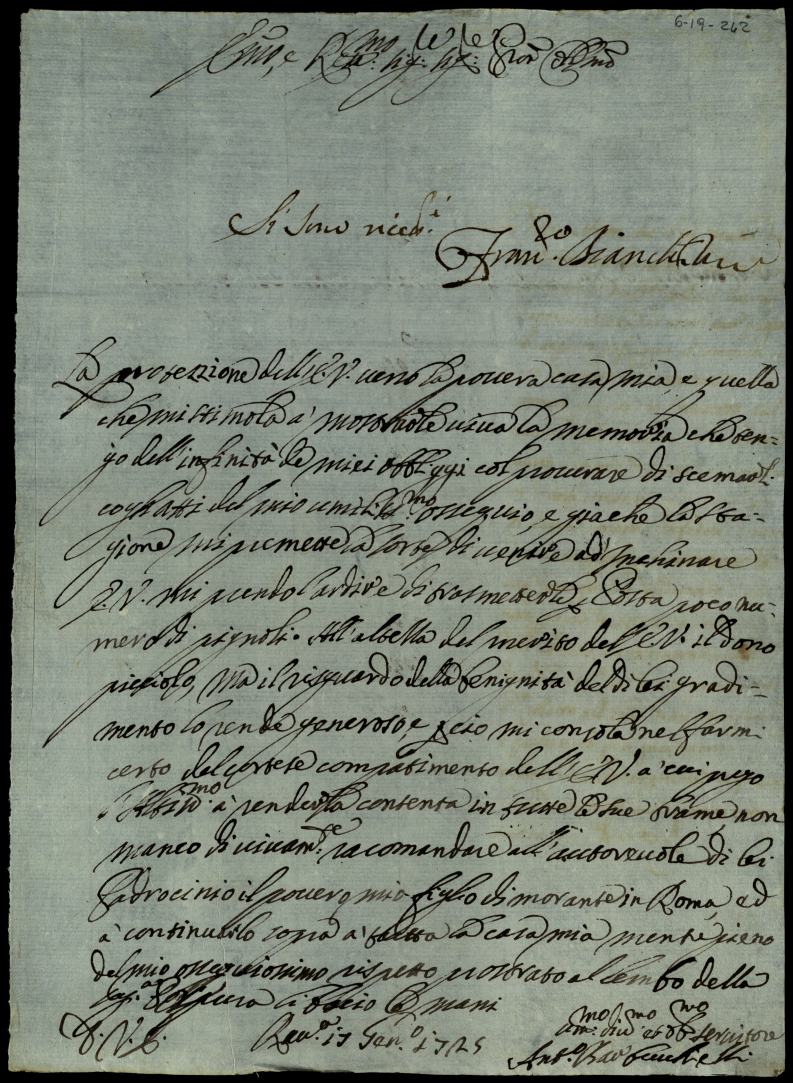 6-19-242
Em̃o, e R.mo Sig. Sig. Pron Col.mo
Si sono riced.i
Fran.co Bianch
La protezzione dell'E.V. verso la povera casa mia, e quella
che mi stimola a' mostrarle viva la memoria che ten-
go dell'infinità de miei obblighi col procurare di scemarli
cogl'atti del mio umiliss.mo ossequio, e giache la sta-
gione mi permette la sorte di venire ad inchinare
E.V. mi prendo l'ardire di trasmetterle poco nu-
mero di pignoli. All'altezza del merito dell'E.V. il dono
picciolo, ma il risguardo della benignità del di lei gradi-
mento lo rende generoso, e perciò mi consola nel farmi
certo del cortese compatimento dell'E.V. a' cui prego
à renderla contenta in tutte le sue brame, non
manco di vivam.te racomandare all'autorevole di lei
Padrocinio il povero mio figlio dimorante in Roma, ed
a' continuarlo sopra a' tutta la casa mia mentre pieno
del mio ossequiosissimo rispetto prostrato al lembo della
Sag.a Porpora li bacio le mani
D.V.E. Rav.a 17 Gen.o 1725
um.mo div.mo et obb.mo servitore
Ant.o